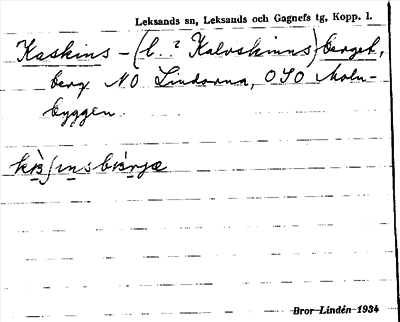 Leksands sn, Leksands och Gagnefs tg, Kopp. l.
Kaskins – (l. ? Kalvskinns) berget,
berg NO Lindorna, OSO Moln-
byggen.
Bror Lindén 1934